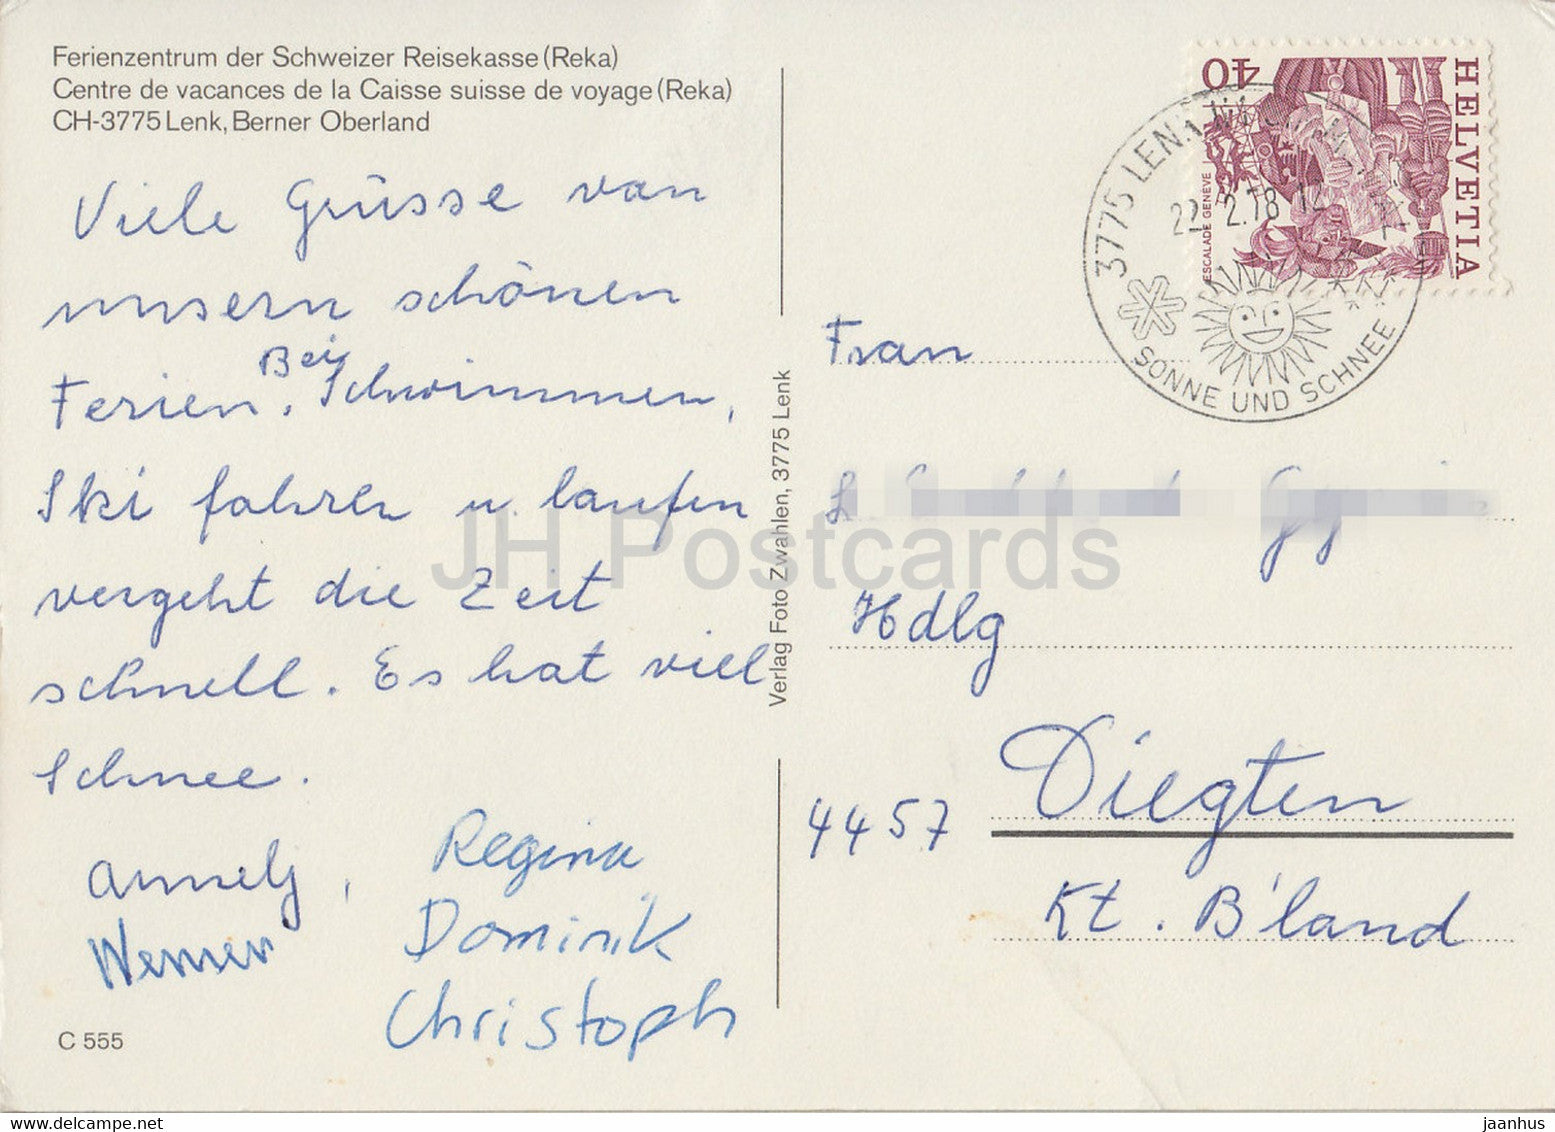 Ferienzentrum der Schweizer Reisekasse (Reka)
Centre de vacances de la Caisse suisse de voyage (Reka)
CH-3775 Lenk, Berner Oberland
Viele Grüsse van
unsern schönen
Ferien. Bei Schwimmen,
Ski fahren u. laufen
vergeht die Zeit
schnell. Es hat viel
Schnee.
Annely,
Werner
Regina
Dominik
Christoph
C 555
Verlag Foto Zwahlen, 3775 Lenk
HELVETIA
40
ESCALADE GENÈVE
3775 LENK
22. 2.78
SONNE UND SCHNEE
Frau
Hdlg
4457 Diegten
Kt. B'land
JH Postcards
www.delcampe.net
jaanhus